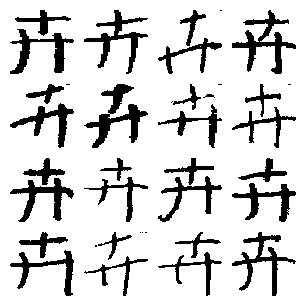 卉卉卉卉
卉卉卉卉
卉卉卉卉
卉卉卉卉